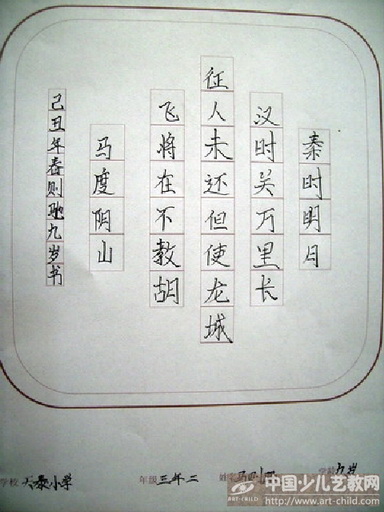 秦时明月
汉时关万里长
征人未还但使龙城
飞将在不教胡
马度阴山
己丑年春则驰九岁书
学校 小学 年级 三年二 九岁
中国少儿艺教网
ART-CHILD.COM www.art-child.com